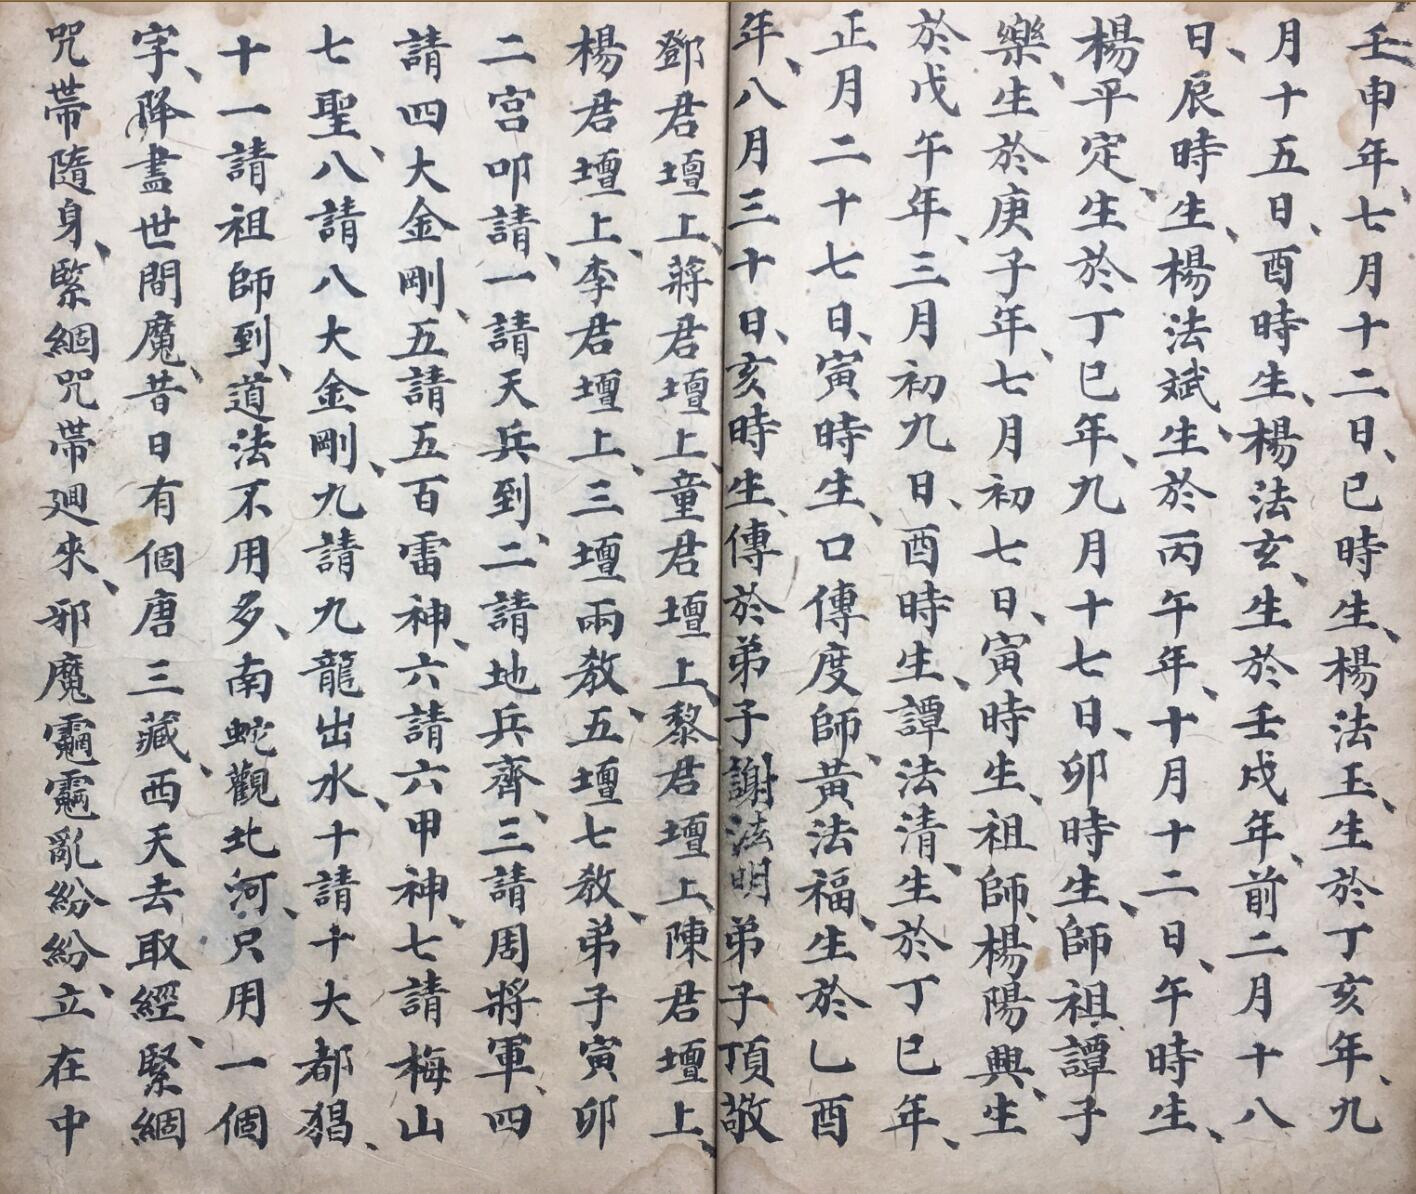 壬申年、七月十二日、巳時生、楊法玉、生於丁亥年、九
月十五日、酉時生、楊法玄、生於壬戌年、前二月十八
日、辰時生、楊法斌、生於丙午年、十月十二日、午時生、
楊平定、生於丁巳年、九月十七日、卯時生、師祖譚子
樂、生於庚子年、七月初七日、寅時生、祖師楊陽興、生
於戊午年、三月初九日、酉時生、譚法清、生於丁巳年、
正月二十七日、寅時生、口傳度師、黃法福、生於乙酉
年、八月三十日、亥時生、傳於弟子謝法明弟子頂敬
鄧君壇上、蔣君壇上、童君壇上、黎君壇上、陳君壇上、
楊君壇上、李君壇上、三壇兩教、五壇七教、弟子寅卯
二宮叩請、一請天兵到、二請地兵齊、三請周將軍、四
請四大金剛、五請五百雷神、六請六甲神、七請梅山
七聖、八請八大金剛、九請九龍出水、十請十大都猖、
十一請祖師到、道法不用多、南蛇觀北河、只用一個
字、降盡世間魔、昔日有個唐三藏、西天去取經、緊綑
咒帶隨身、緊綑咒帶廻來、邪魔亂紛紛、立在中